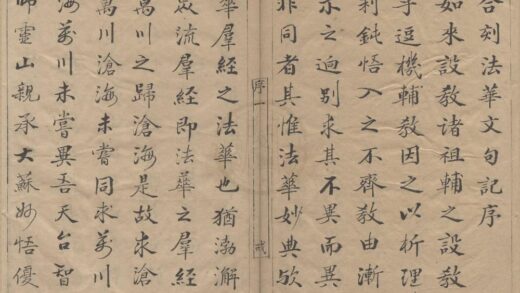 合刻法華文句記序
如來設教諸祖輔之設教
乎逗機輔教因之以析理
利鈍悟入之不齊教由漸
示之逈別求其不異而異
非同者其惟法華妙典歟
序一
華羣經之法華也猶渤澥
眾流羣經即法華之羣經
萬川之歸滄海是故求滄
萬川滄海未嘗同求萬川
海萬川未嘗異吾天台智
師靈山親承大蘇妙悟優